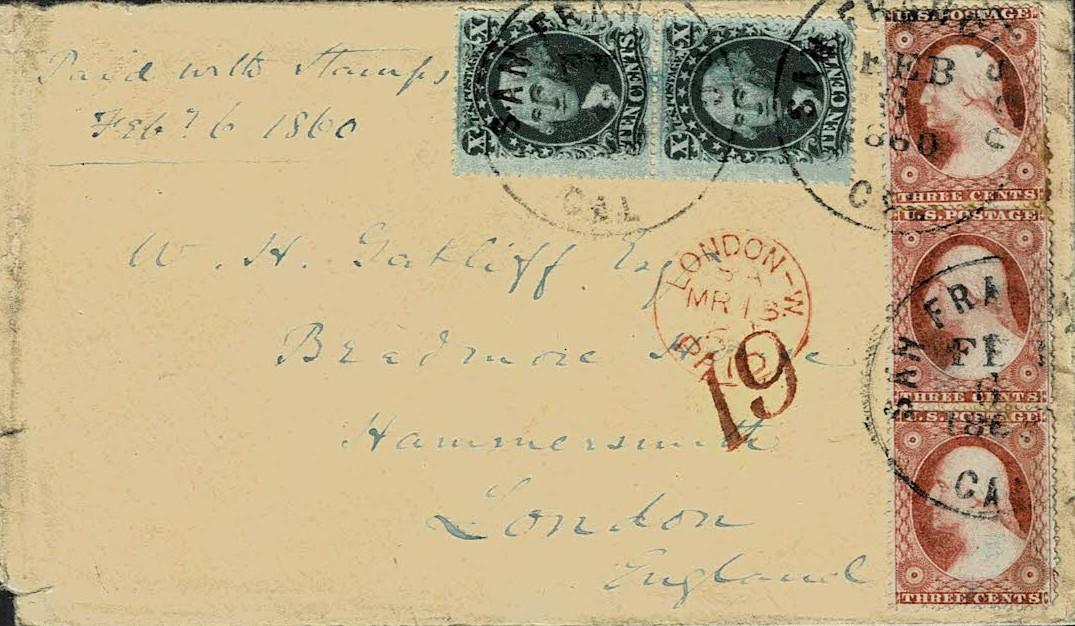 Paid with Stamps
Feby 6 1860
X U.S. POSTAGE X
X TEN CENTS X
X U.S. POSTAGE X
X TEN CENTS X
SAN FRAN
CAL
SAN FRAN
FEB
6
1860
U.S. POSTAGE
THREE CENTS
U.S. POSTAGE
THREE CENTS
U.S. POSTAGE
THREE CENTS
SAN FRA
FE
6
186
CAL
LONDON-W
MR 13
PAID
19
W. H. Gatliff Esq
Bradmore House
Hammersmith
London
England